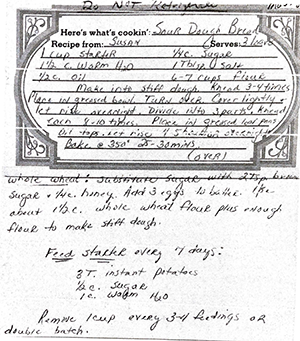 Do Not Refrigerate
Here's what's cookin': Sour Dough Bread
Recipe from: Susan Serves: 3 loaves
1 cup starter ¼c. Sugar
1½ c. Warm H2O 1 Tbsp salt
½c. Oil 6-7 cups flour
Make into stiff dough. Knead 3-4 times
Place in greased bowl. Turn over. Cover lightly &
let rise overnight. Divide into 3 parts. Knead
each 8-10 times. Place in greased loaf pans
Oil tops. Let rise 4-5 hours or overnight
Bake @ 350° 25-30 mins
(OVER)
whole wheat: Substitute sugar with 2 Tsp brown
sugar & ¼c. honey. Add 3 eggs to batter. Use
about 1½c. whole wheat flour plus enough
flour to make stiff dough.
Feed starter every 7 days:
3T. instant potatoes
½c. sugar
1c. warm H2O
Remove 1 cup every 3-4 feedings or
double batch.